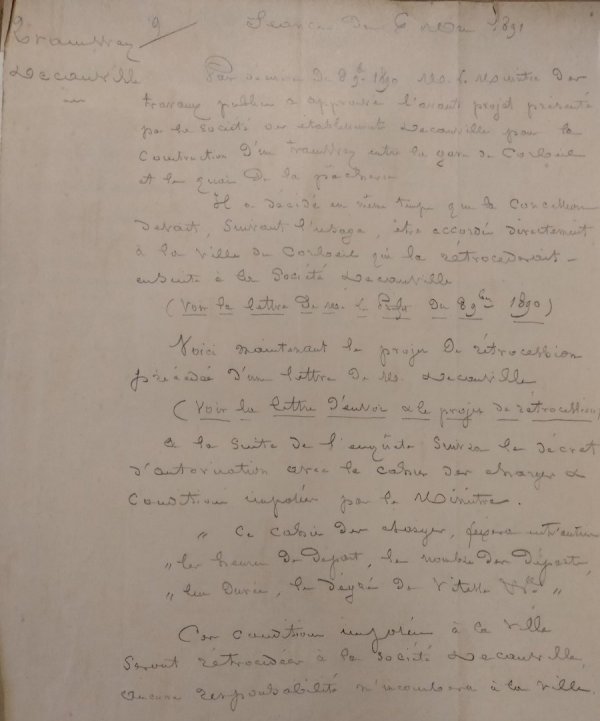 Tramway 9/ Séance du 6 Mai 1891
Decauville
Par décision du 8 9bre 1890 M. le Ministre des
travaux publics a approuvé l'avant projet présenté
par la Société des établissements Decauville pour la
Construction d'un tramway entre la gare de Corbeil
et le quai de la pêcherie
Il a décidé en même temps que la Concession
devait, suivant l'usage, être accordée directement
à la ville de Corbeil qui la rétrocéderait
ensuite à la Société Decauville
(Voir la lettre de M. le Préfet du 8 9bre 1890)
Voici maintenant le projet de rétrocession
précédé d'une lettre de M. Decauville
(Voir la lettre d'envoi & le projet de rétrocession)
A la suite de l'enquête suivra le décret
d'autorisation avec le cahier des charges &
Conditions imposées par le Ministre.
" Ce cahier des charges, fixera entr'autres
" les heures de départ, le nombre des départs,
" leur durée, le dégré de vitesse &a "
Ces conditions imposées à la ville
seront rétrocédées à la Société Decauville,
aucune responsabilité n'incombera à la ville.